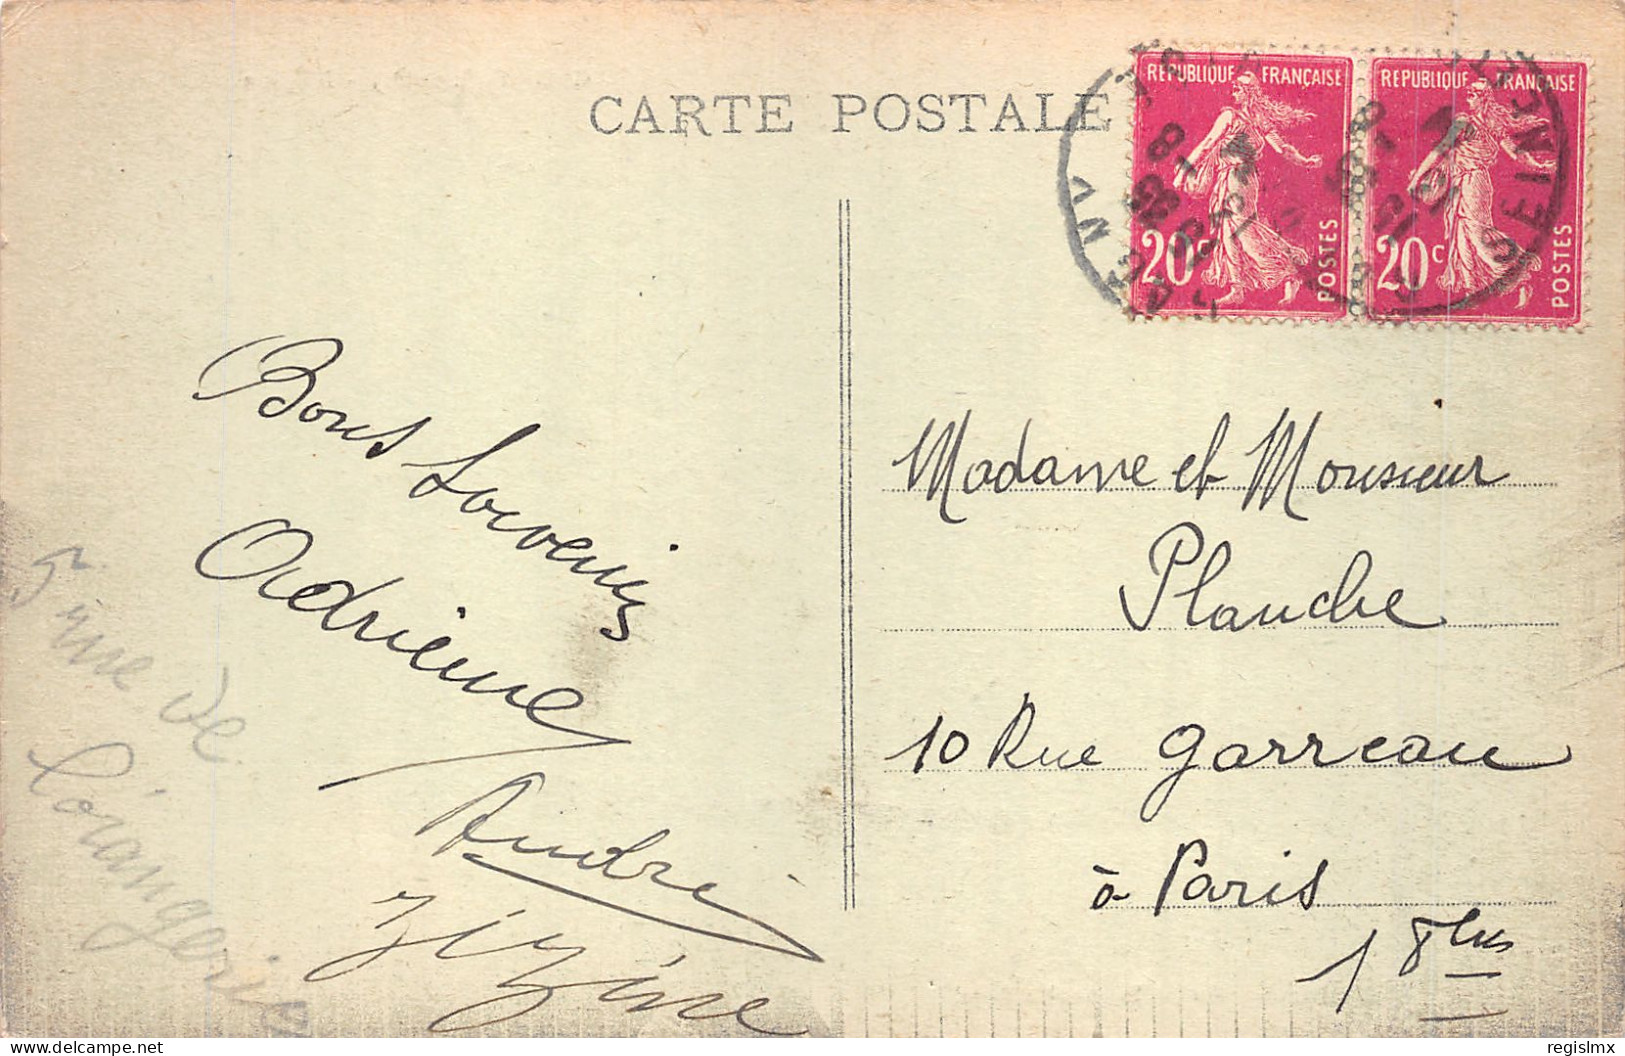 CARTE POSTALE
REPUBLIQUE FRANÇAISE
20c
POSTES
REPUBLIQUE FRANÇAISE
20c
POSTES
Bons Souvenirs
Adriénne
André
Zizine
5 rue de
l'orangerie
Madame et Monsieur
Planche
10 Rue Garreau
à Paris
18
www.delcampe.net
regislmx